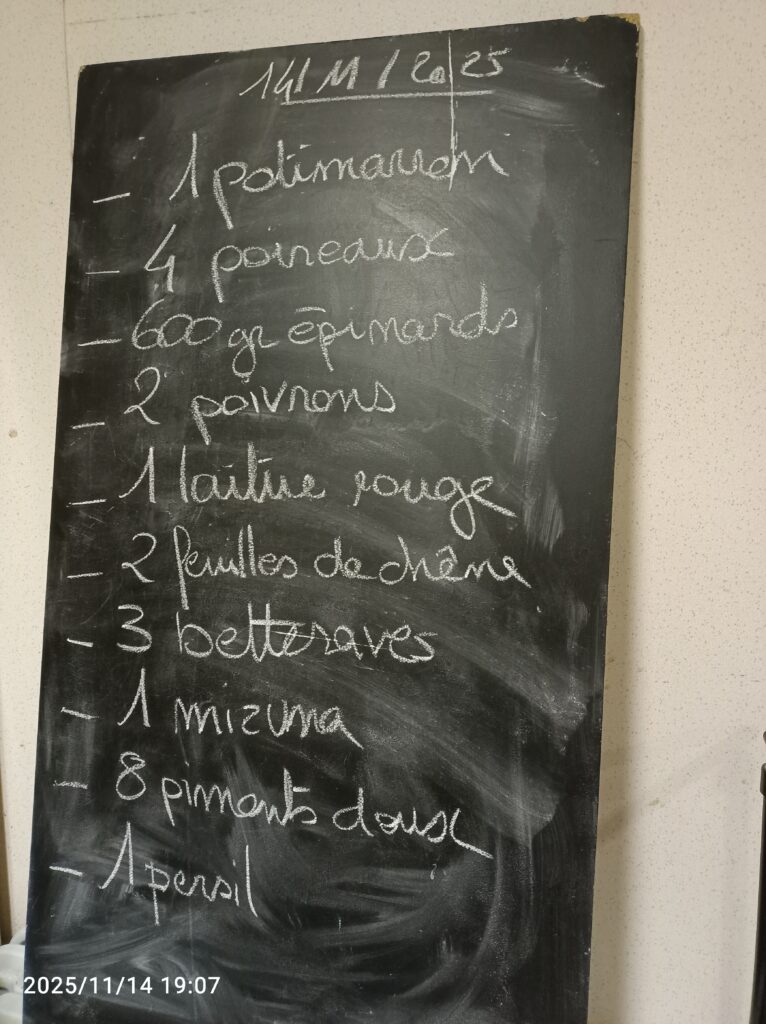 14/11/2025
- 1 potimarron
- 4 poireaux
- 600 gr épinards
- 2 poivrons
- 1 laitue rouge
- 2 feuilles de chêne
- 3 betteraves
- 1 mizuna
- 8 piments doux
- 1 persil
2025/11/14 19:07